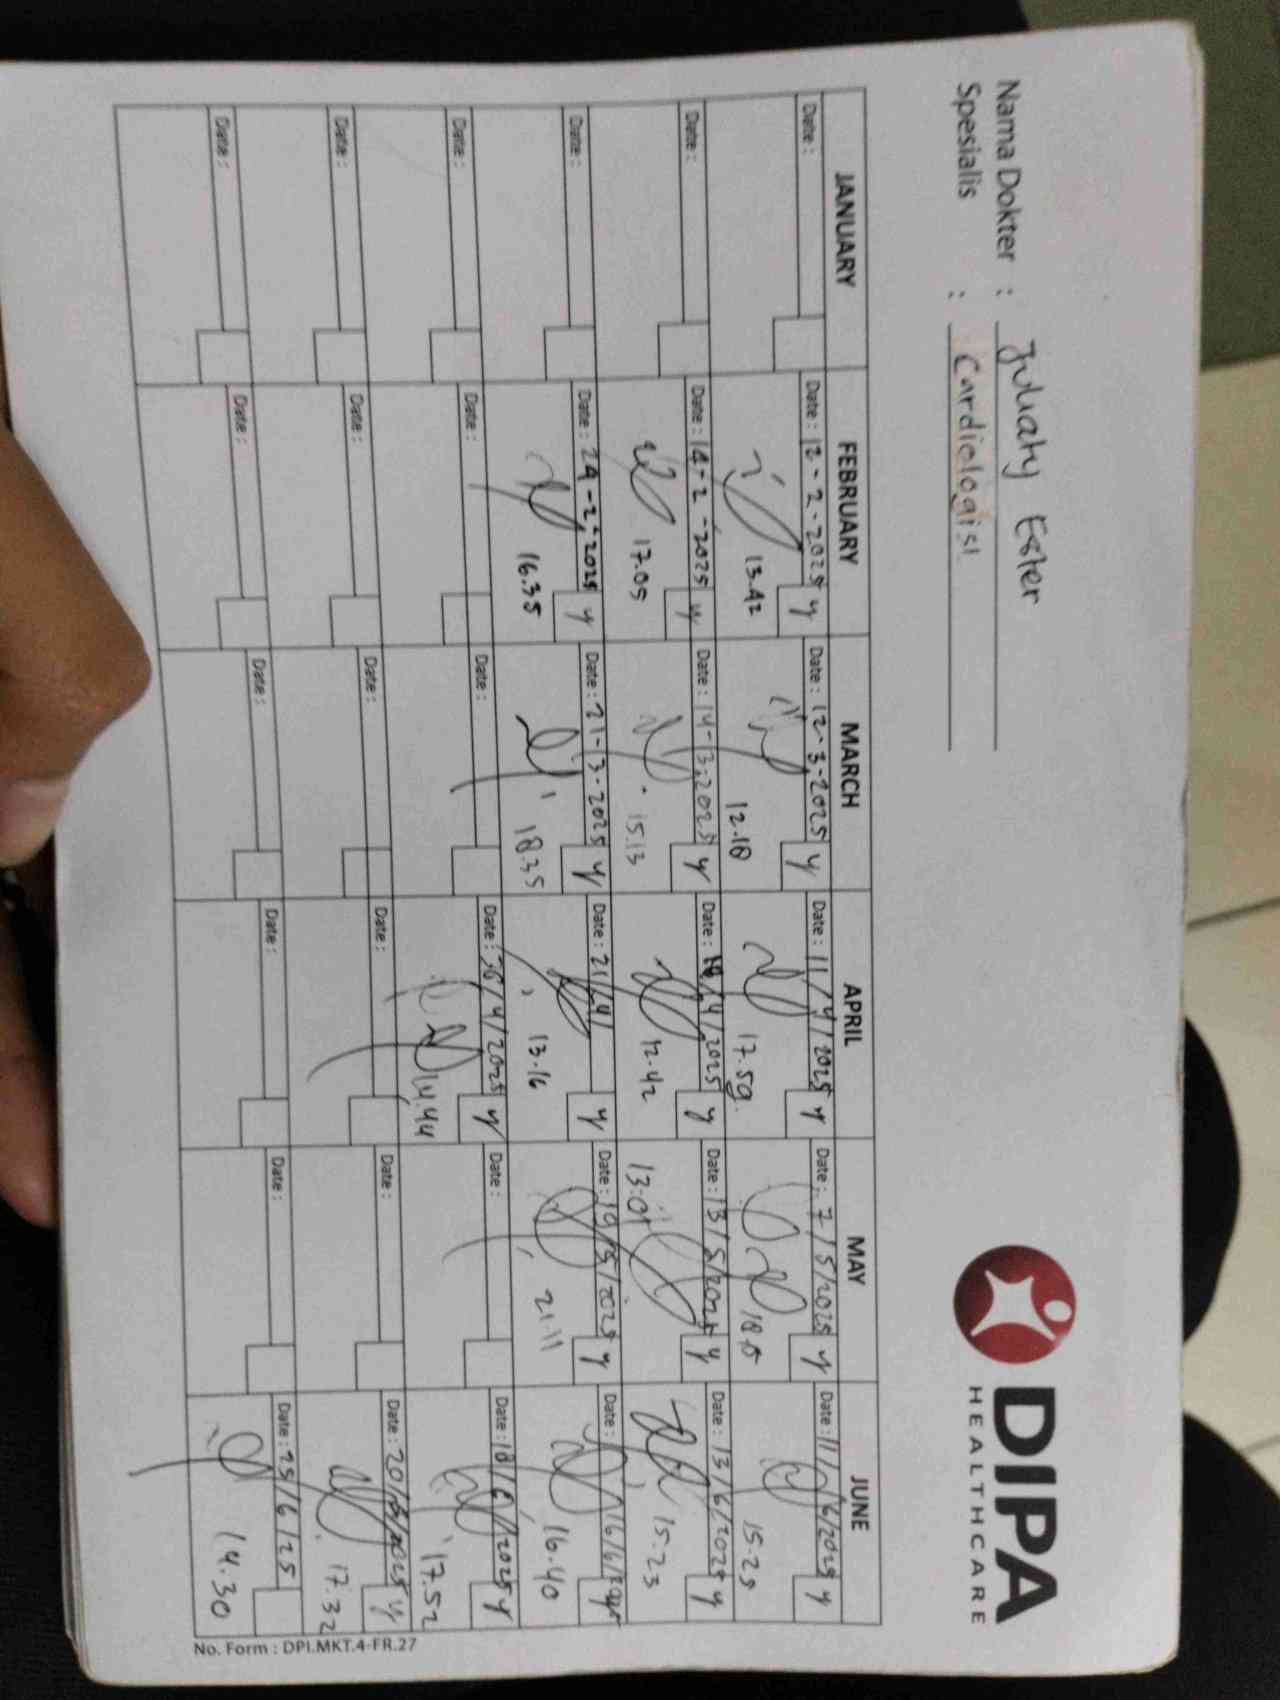 DIPA
HEALTHCARE
Nama Dokter : Juliaty Ester
Spesialis : Cardiologist
JANUARY FEBRUARY MARCH APRIL MAY JUNE
Date : Date : 12-2-2025 y Date : 12-3-2025 y Date : 11/4/2025 y Date : 7/5/2025 y Date : 11/6/2025 y
13.42 12.18 17.59 15.25
Date : Date : 14-2-2025 y Date : 14-3-2025 y Date : /4/2025 y Date : 13/5/2025 y Date : 13/6/2025 y
17.05 15.13 12.42 13:01 15.23
Date : Date : 24-2-2025 y Date : 21-3-2025 y Date : 21/4/ y Date : 19/5/2025 y Date : 16/6/
16.35 18.35 13.16 21.11 16.40
Date : Date : Date : Date : 30/4/2025 y Date : Date : 18/6/2025 y
14.44 17.52
Date : Date : Date : Date : Date : Date : 20/6/2025 y
17.32
Date : Date : Date : Date : Date : Date : 25/6/25
14.30
No. Form : DPI.MKT.4-FR.27